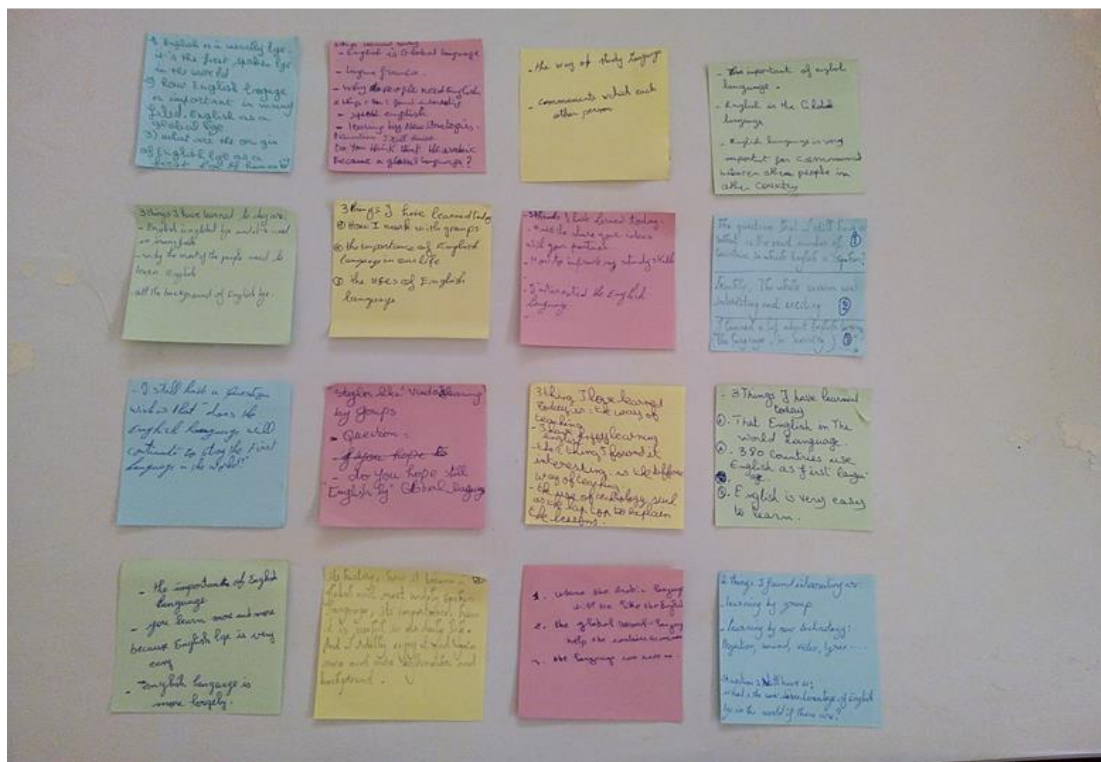 1) English is a usually lge.
it's the first spoken lge
in the world
2) How English language
is important in many
filed. English as a
global lge
3) what are the origin
of English lge as a
- English is Global language
- Lingua franca.
- Why do people need English
- speak english
- learning by New strategies.
Do you think that the arabic
became a global language?
- the way of study language
- communicate which each
other person
- The important of english
language.
- English is the Global
language
- English language is very
important for communicat
between other people in
other country
3 things I have learned to day are:
- English is global lge and it is used
- why the most of the people need to
learn English
- all the background of English lge.
3 things I have learned today
① How I work with groups
② the importance of English
language in our life
③ the uses of English
language
3 things I have learned today:
- share your ideas
with your partner
- How to improving study skills
- I interested the English
language.
The question that I still have is
what is the exact number of ①
countries in which English is spoken?
Frankly, The whole session was
interesting and exciting ②
I learned a lot about English
The language, ③
- I still have a question
wich is that "does the
English language will
continute to stay the First
language in the world?"
by goups
- Question:
- do you hope still
"English by" Global language
3 thing I have learned
today is: the way of
teaching
- I have enjoy learning
english
- the thing I found it
interesting is the different
way of teaching
- the use of technology such
as the lap top to explain
the lessons.
- 3 Things I have learned
today
①. That English is The
world language.
②. 380 Countries use
English as first langu-
age.
③. English is very easy
to learn.
- the important of English
language
- you learn more and more
because English lge is very
easy
- English language is
more largely.
its history, how it became a
global and most widely spoken
language, its importance, how
it is useful in our daily life.
And I really enjoy it and want
more and more information and
background.
1. where the Arabic language
will be like the English
2. the global language
help the
3. the language
2 things I found interesting are:
- learning by group
- learning by new technology:
sound, video,
Question I still have is:
what is the disadvantage of English
lge in the world if there are?